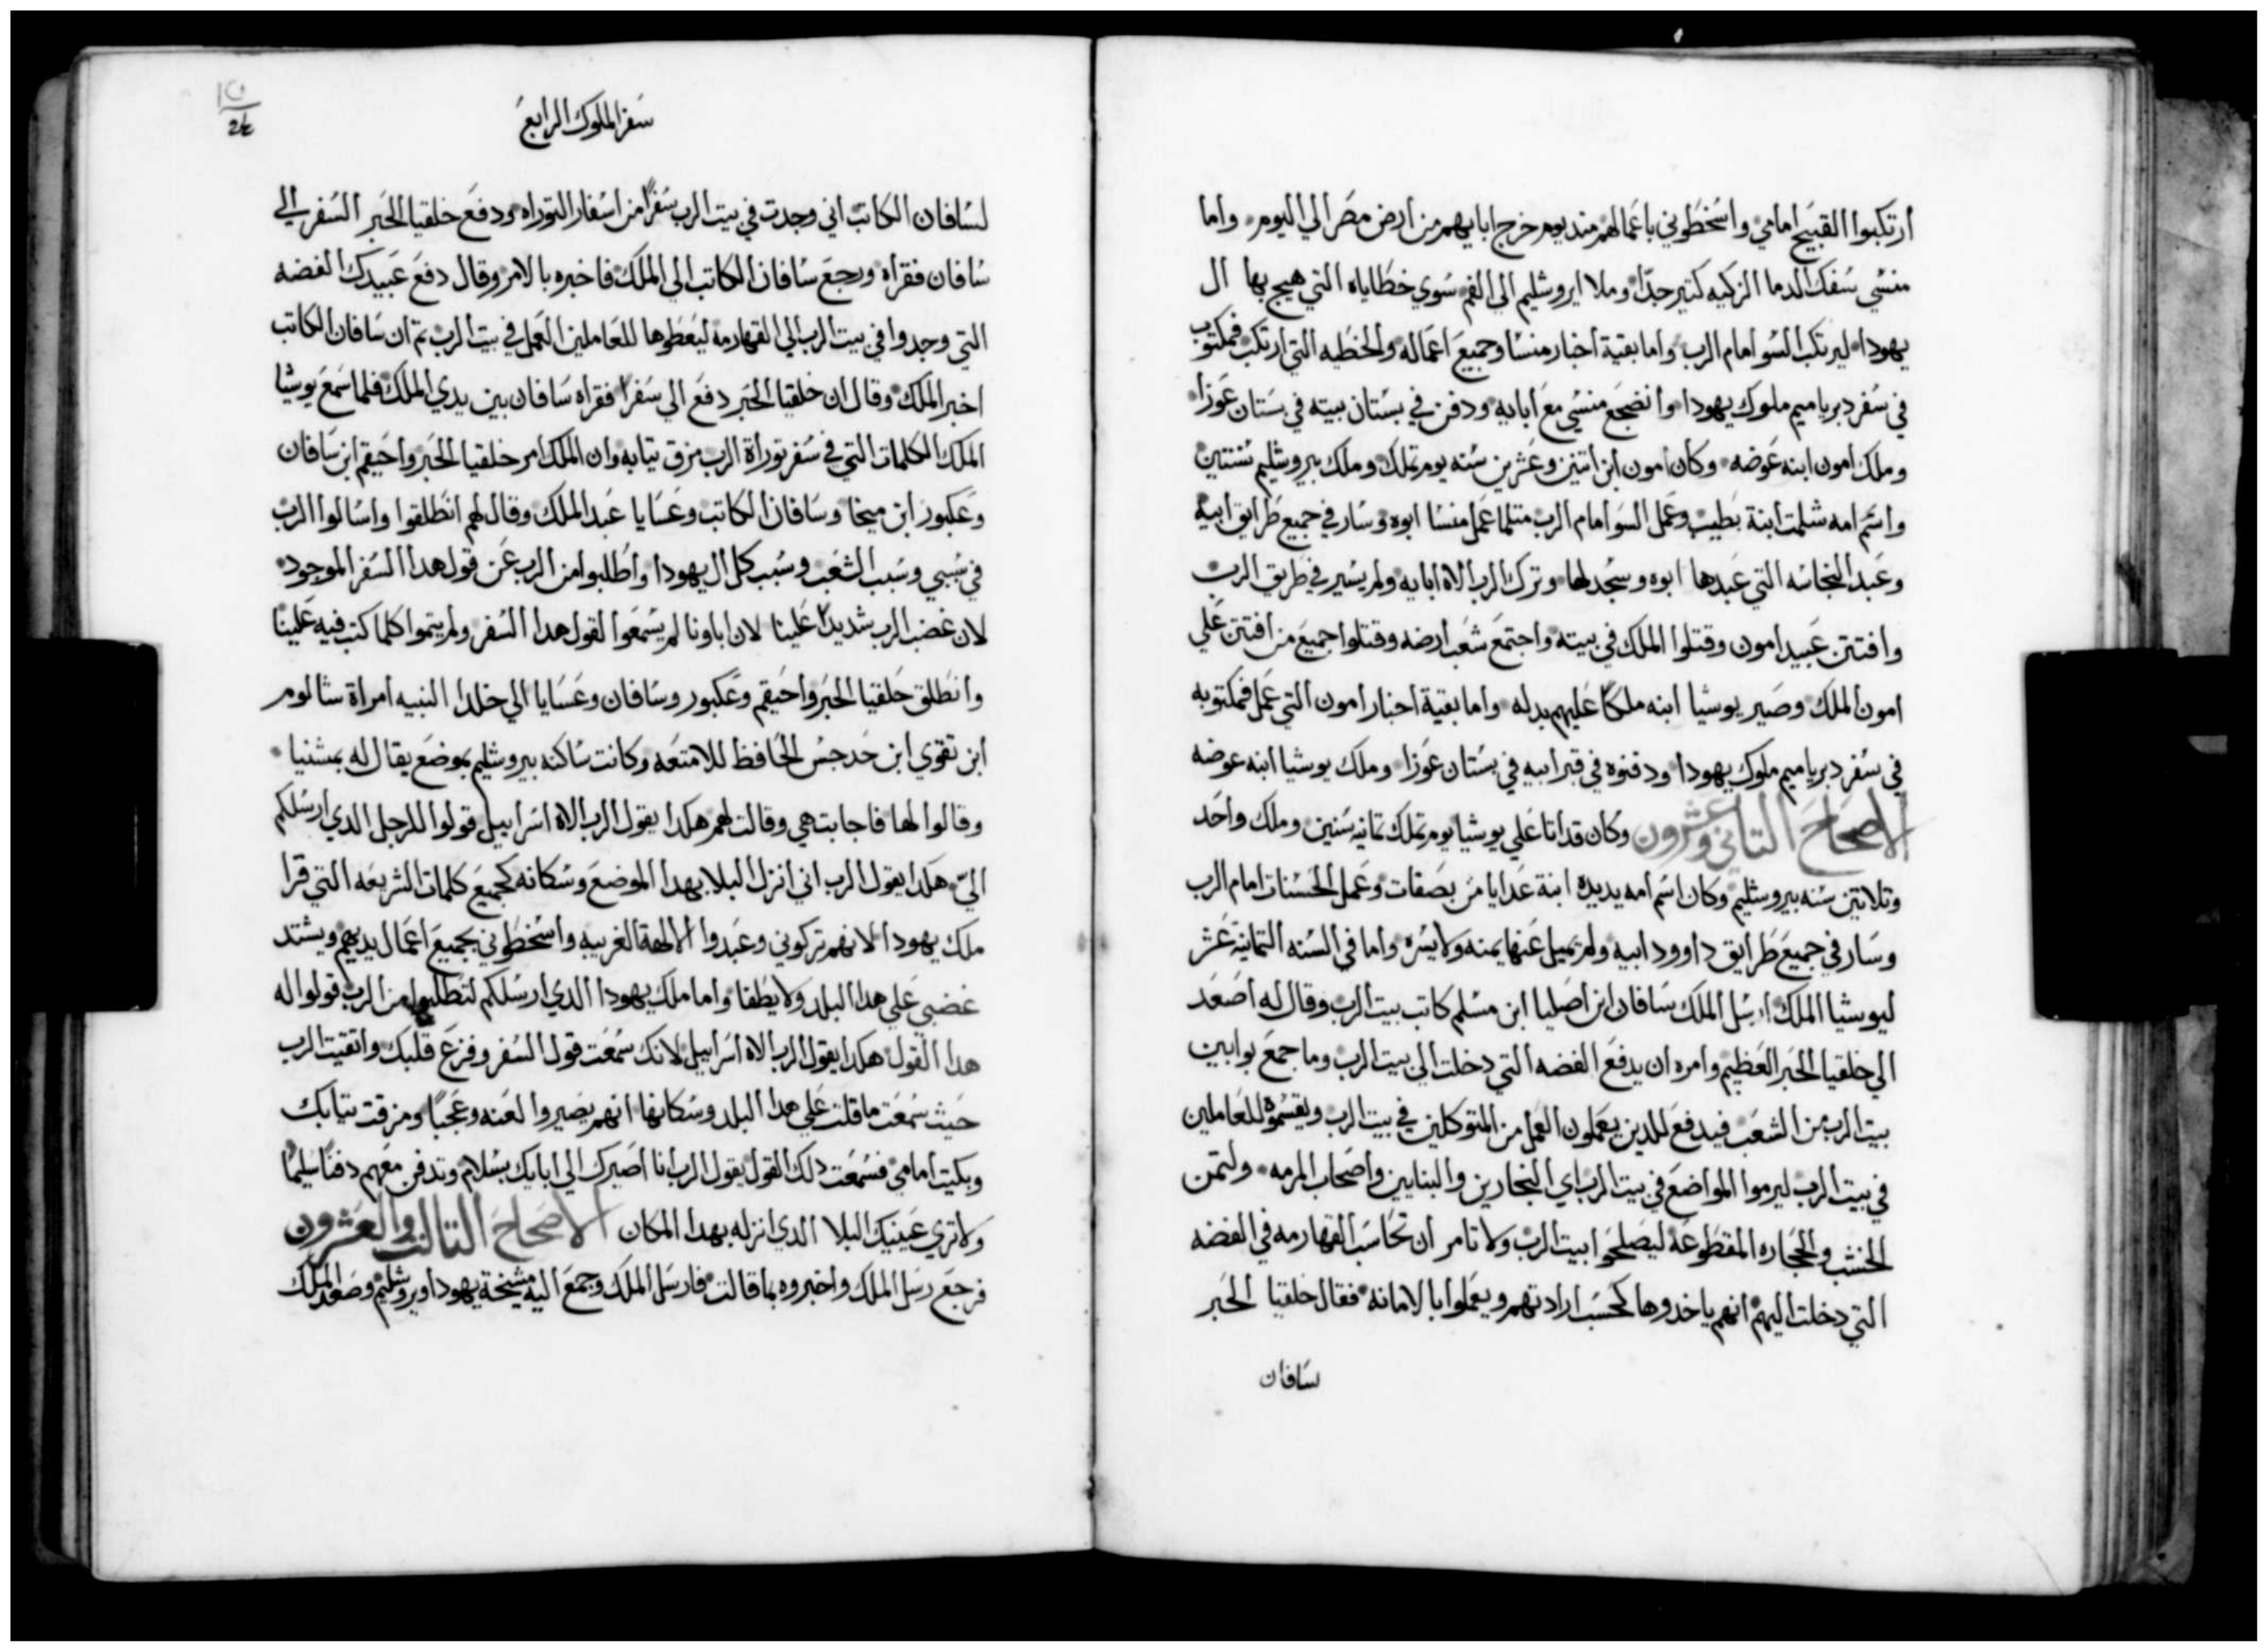 ارتكبوا القبيح امامي واسخطوني باعمالهم مند يوم خرج ابايهم من ارض مصر الي اليوم واما
منسي سفك الدما الزكيه كتير جدا وملا ايروشليم الي الفم سوي خطاياه التي هيج بها ال
يهودا ليرتكب السو امام الرب واما بقية اخبار منسا وجميع اعماله والخطيه التي ارتكب فمكتوب
في سفر دبرياميم ملوك يهودا وانضجع منسي مع ابايه ودفن في بستان بيته في بستان عوزا
وملك امون ابنه عوضه وكان امون ابن اتنين وعشرين سنه يوم تملك وملك بيروشليم سنتين
واسم امه شلمت ابنة بطيب وعمل السو امام الرب متلما عمل منسا ابوه وسار في جميع طرايق ابيه
وعبد النجاسه التي عبدها ابوه وسجد لها وترك الرب الاه ابايه ولم يسير في طريق الرب
وافتتن عبيد امون وقتلوا الملك في بيته واجتمع شعب ارضه وقتلوا جميع من افتتن علي
امون الملك وصير يوشيا ابنه ملكا عليهم بدله واما بقية اخبار امون التي عمل فمكتوبه
في سفر دبرياميم ملوك يهودا ودفنوه في قبر ابيه في بستان عوزا وملك يوشيا ابنه عوضه
الاصحاح التاني وعشرون وكان قد اتا علي يوشيا يوم تملك تمانيه سنين وملك واحد
وتلاتين سنه بيروشليم وكان اسم امه يديده ابنة عدايا من بصقات وعمل الحسنات امام الرب
وسار في جميع طرايق داوود ابيه ولم يميل عنها يمنه ولا يسره واما في السنه التمانية عشر
ليوشيا الملك ارسل الملك سافان ابن اصليا ابن مسلم كاتب بيت الرب وقال له اصعد
الي خلقيا الحبر العظيم وامره ان يدفع الفضه التي دخلت الي بيت الرب وما جمع بوابين
بيت الرب من الشعب فيدفع للدين يعملون العمل من المتوكلين في بيت الرب ويقسموه للعاملين
في بيت الرب ليرموا المواضع في بيت الرب اي النجارين والبنايين واصحاب المرمه ولتمن
الخشب والحجاره المقطوعه ليصلحوا بيت الرب ولا تامر ان تحاسب القهارمه في الفضه
التي دخلت اليهم انهم ياخدوها كحسب ارادتهم ويعملوا بالامانه فقال خلقيا الحبر
سافان
سفر الملوك الرابع
لسافان الكاتب اني وجدت في بيت الرب سفرا من اسفار التوراه ودفع خلقيا الحبر السفر الي
سافان فقراه ورجع سافان الكاتب الي الملك فاخبره بالامر وقال دفع عبيدك الفضه
التي وجدوا في بيت الرب الي القهارمه ليعطوها للعاملين العمل في بيت الرب تم ان سافان الكاتب
اخبر الملك وقال ان خلقيا الحبر دفع الي سفرا فقراه سافان بين يدي الملك فلما سمع يوشيا
الملك الكلمات التي في سفر توراة الرب مزق تيابه وان الملك امر خلقيا الحبر واحيقم ابن سافان
وعكبور ابن ميخا وسافان الكاتب وعسايا عبد الملك وقال لهم انطلقوا واسالوا الرب
في سببي وسبب الشعب وسبب كل ال يهودا واطلبوا من الرب عن قول هدا السفر الموجود
لان غضب الرب شديدا علينا لان اباونا لم يسمعوا لقول هدا السفر ولم يتموا كلما كتب فيه علينا
وانطلق خلقيا الحبر واحيقم وعكبور وسافان وعسايا الي خلدا النبيه امراة شالوم
ابن تقوي ابن حدجس الحافظ للامتعه وكانت ساكنه بيروشليم بموضع يقال له بمشنيا
وقالوا لها فاجابت هي وقالت لهم هكدا يقول الرب الاه اسراييل قولوا للرجل الدي ارسلكم
الي هكدا يقول الرب اني انزل البلا بهدا الموضع وسكانه كجميع كلمات الشريعه التي قرا
ملك يهودا لانهم تركوني وعبدوا الالهة الغريبه واسخطوني بجميع اعمال يديهم ويشتد
غضبي علي هدا البلد ولا يطفا واما ملك يهودا الدي ارسلكم لتطلبوا من الرب قولوا له
هدا القول هكدا يقول الرب الاه اسراييل لانك سمعت قول السفر وفزع قلبك واتقيت الرب
حيث سمعت ما قلت علي هدا البلد وسكانها انهم يصيروا لعنه وعجبا ومزقت تيابك
وبكيت امامي فسمعت دلك القول يقول الرب انا اصيرك الي ابايك بسلام وتدفن معهم دفنا سليما
ولا تري عينيك البلا الدي انزله بهدا المكان الاصحاح التالت والعشرون
فرجع رسل الملك واخبروه بما قالت فارسل الملك وجمع اليه مشيخة يهودا ويروشليم وصعد الملك